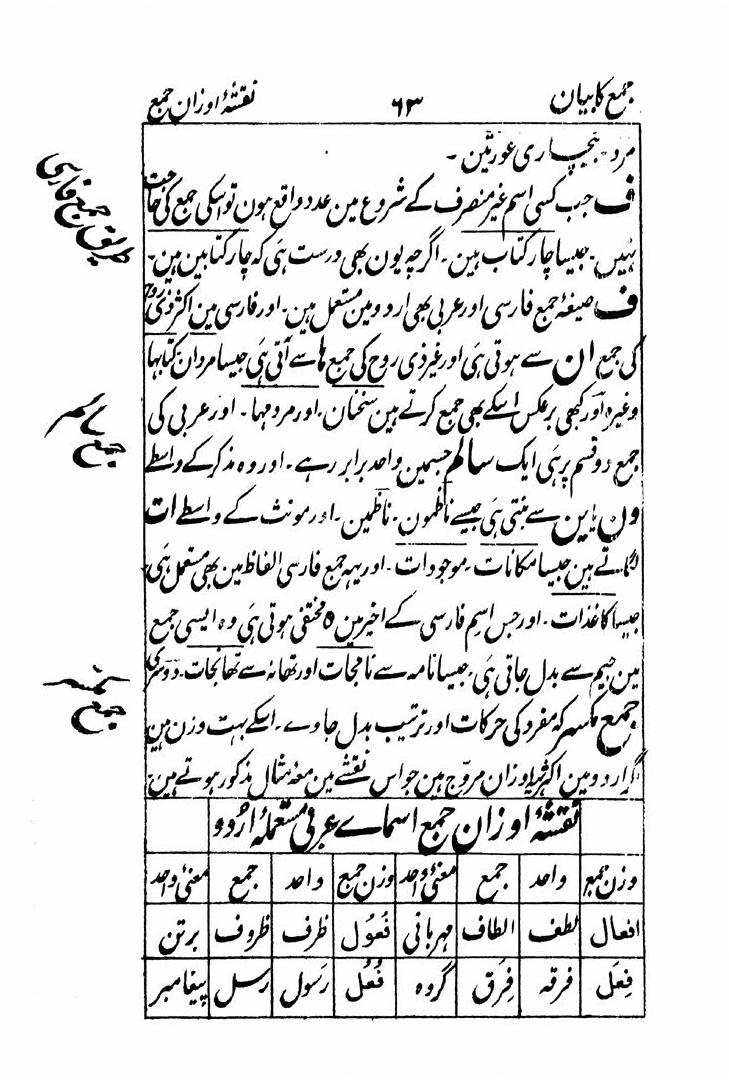 جمع کا بیان ٦٣ نقشۂ اوزان جمع
مرد۔ بیچاری عورتین ۔
ف جب کسی اسم غیر منصرف کے شروع مین عدد واقع ہون تو اسکی جمع کی حاجت
نہیں۔ جیسا چار کتاب ہین۔ اگرچہ یون بھی درست ہی کہ چار کتابین ہین۔
ف صیغۂ جمع فارسی اور عربی بھی اردو مین مستعمل ہین۔ اور فارسی مین اکثر ذی روح
طریق جمع فارسی
کی جمع ان سے ہوتی ہی اور غیر ذی روح کی جمع ہا سے آتی ہی جیسا مردان کتابہا
وغیرہ اور کبھی برعکس اسکے بھی جمع کرتے ہین سخنان۔ اور مردمہا۔ اور عربی کی
جمع دو قسم پر ہی ایک سالم جسمین واحد برابر رہے۔ اور وہ مذکر کے واسطے
جمع سالم
ون یا ین سے بنتی ہی جیسے ناظمون۔ ناظمین۔ اور مونث کے واسطے ات
لگاتے ہین جیسا مکانات۔ موجودات۔ اور یہہ جمع فارسی الفاظ مین بھی مستعمل ہی
جیسا کاغذات۔ اور جس اسم فارسی کے اخیر مین ہ مختفی ہوتی ہی وہ ایسی جمع
مین جیم سے بدل جاتی ہی۔ جیسا نامہ سے نامجات اور تھانہ سے تھانجات۔ دوسری
جمع مکسر کہ مفرد کی حرکات اور ترتیب بدل جاوے۔ اسکے بہت وزن ہین
جمع مکسر
مگر اردو مین اکثر یہ اوزان مروّج ہین جو اس نقشے مین معہ مثال مذکور ہوتے ہین
نقشۂ اوزان جمع اسماے عربی مستعملۂ اردو
وزن جمع واحد جمع معنیٔ واحد وزن جمع واحد جمع معنیٔ واحد
افعال لطف الطاف مہربانی فُعُول ظرف ظروف برتن
فِعَل فرقہ فِرَق گروہ فُعُل رَسول رسل پیغامبر